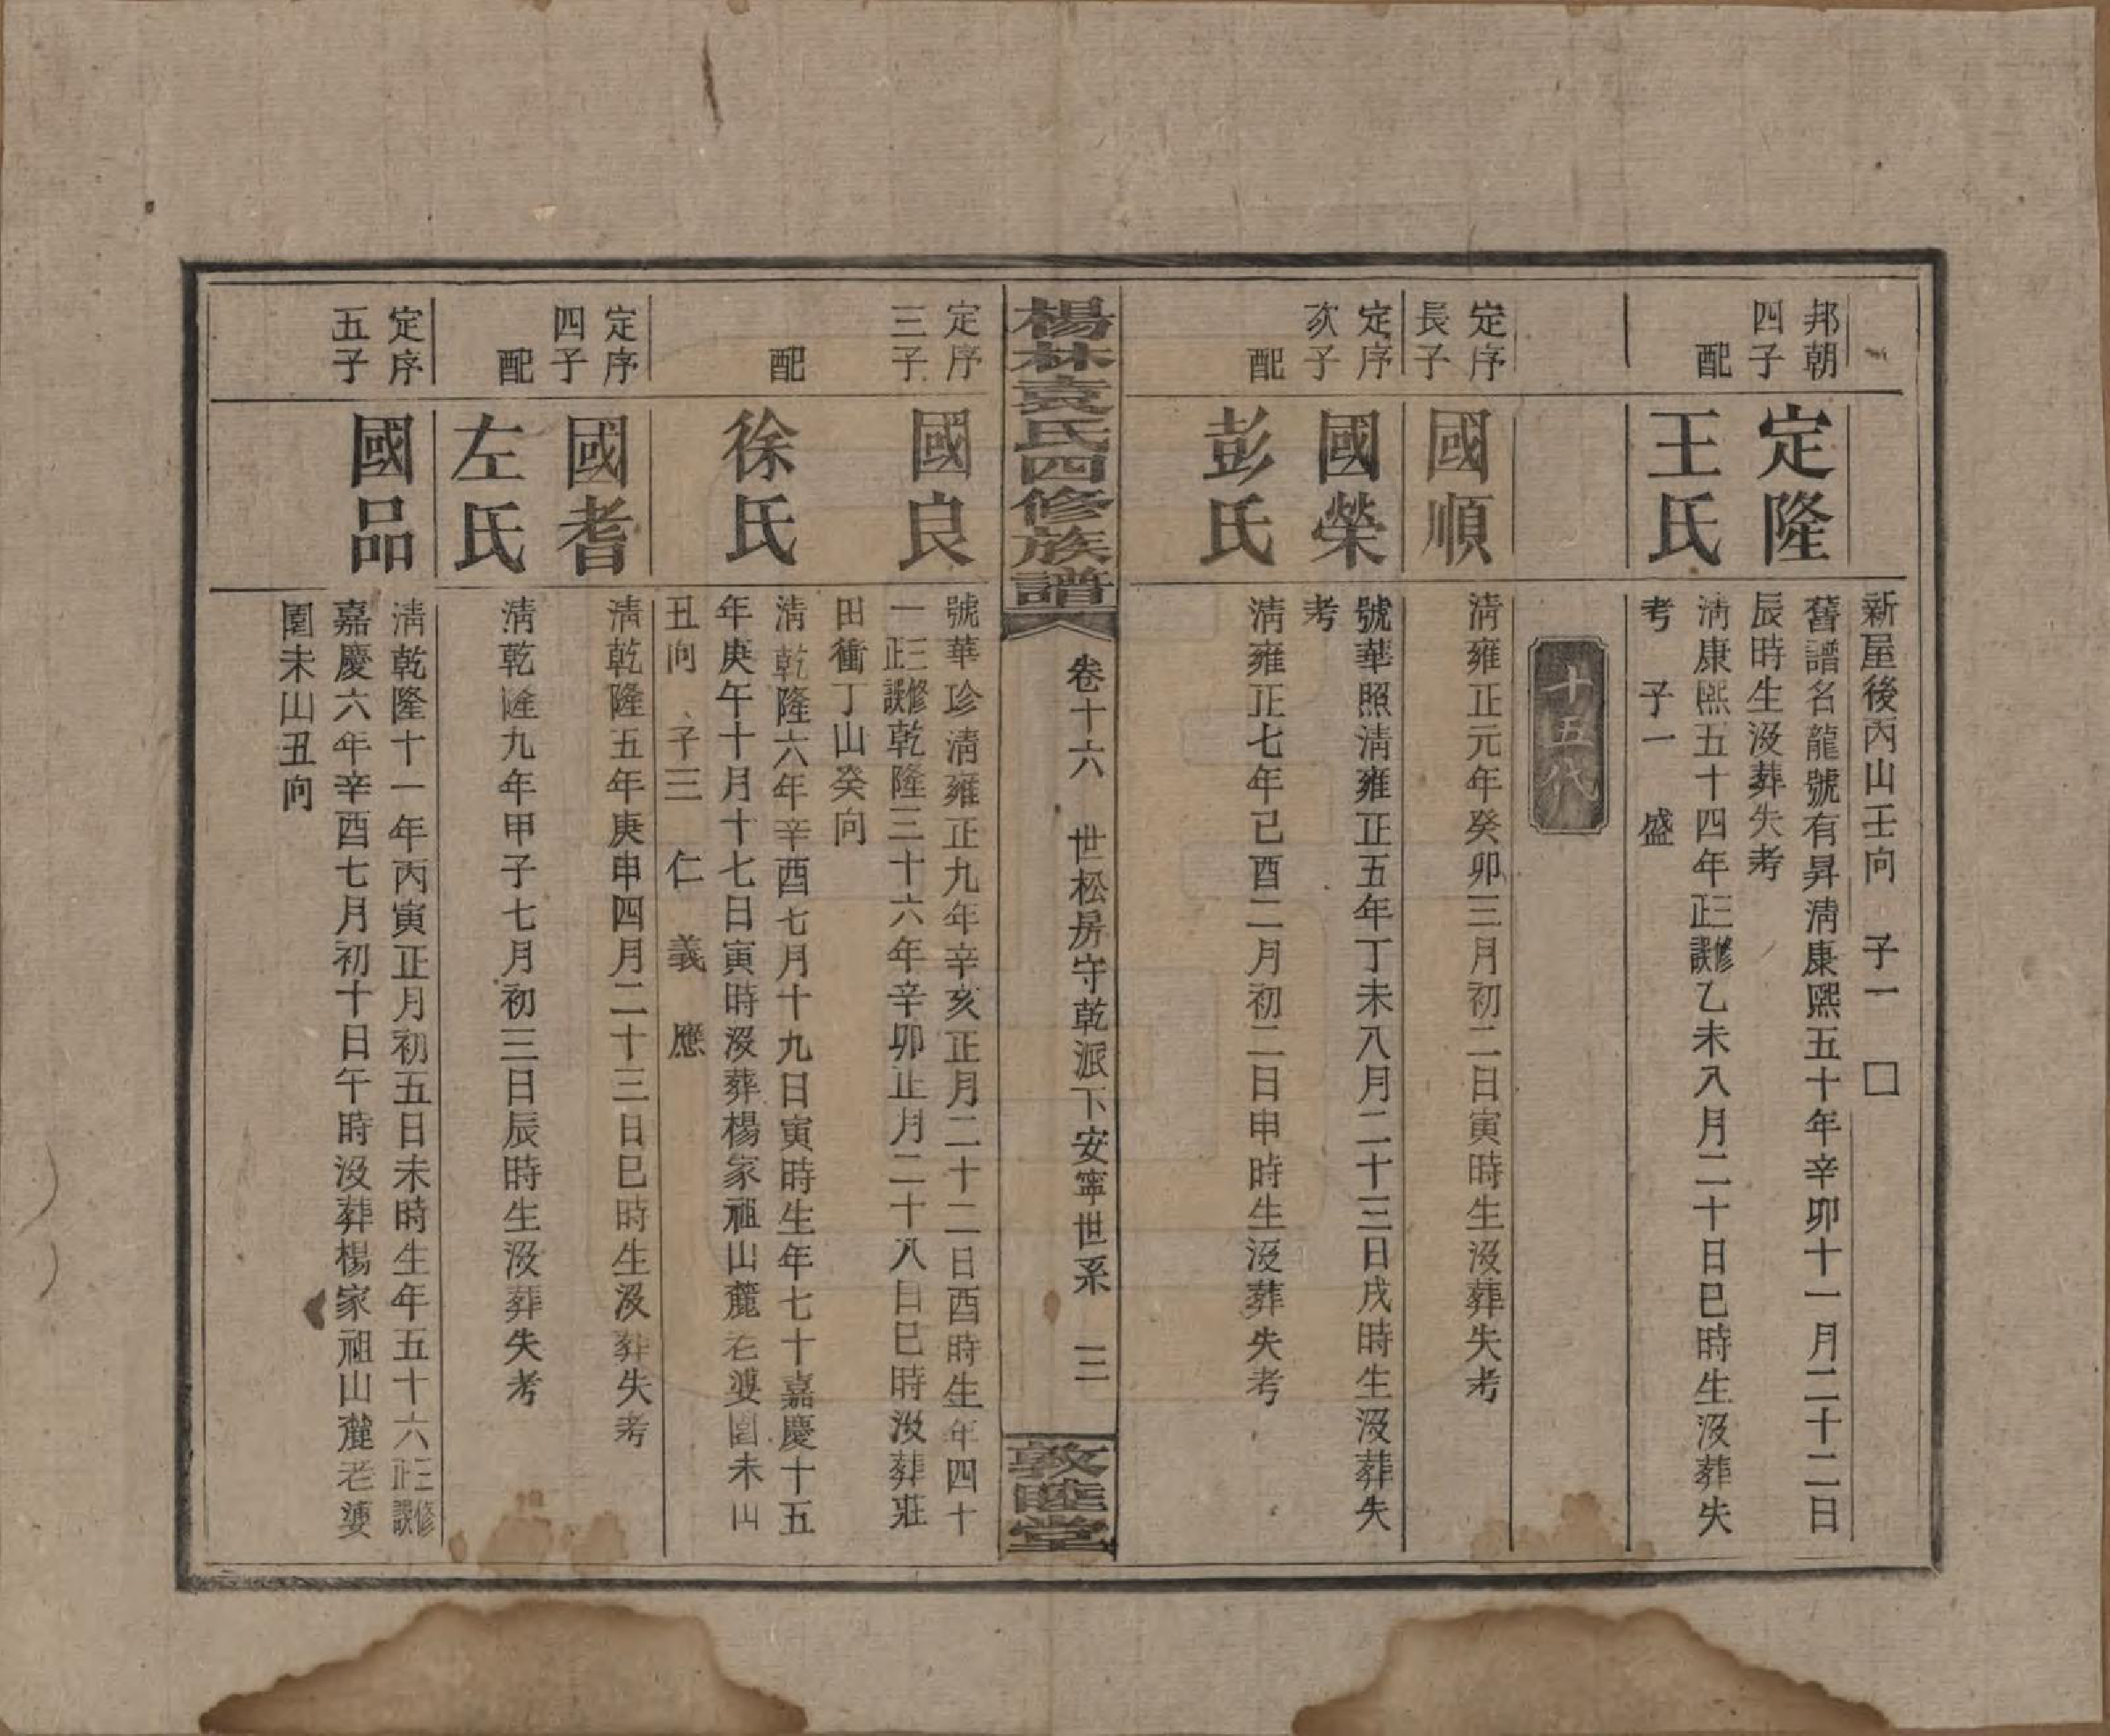 新屋後丙山壬向　子一　□
邦朝四子
定隆
舊譜名龍號有昇淸康熙五十年辛卯十一月二十二日
辰時生沒葬失考
配
王氏
淸康熙五十四年三修正誤乙未八月二十日巳時生沒葬失
考　子一　盛
十五代
定序長子
國順
淸雍正元年癸卯三月初二日寅時生沒葬失考
定序次子
國榮
號華照淸雍正五年丁未八月二十三日戌時生沒葬失
考
配
彭氏
淸雍正七年己酉二月初二日申時生沒葬失考
楊林袁氏四修族譜
卷十六　世松房守乾派下安寧世系　三
敦睦堂
定序三子
國良
號華珍淸雍正九年辛亥正月二十二日酉時生年四十
一三修正誤乾隆三十六年辛卯正月二十八日巳時沒葬莊
田衝丁山癸向
配
徐氏
淸乾隆六年辛酉七月十九日寅時生年七十嘉慶十五
年庚午十月十七日寅時沒葬楊家祖山麓老婆園未山
丑向　子三　仁　義　應
定序四子
國耆
淸乾隆五年庚申四月二十三日巳時生沒葬失考
配
左氏
淸乾隆九年甲子七月初三日辰時生沒葬失考
定序五子
國品
淸乾隆十一年丙寅正月初五日未時生年五十六三修正誤
嘉慶六年辛酉七月初十日午時沒葬楊家祖山麓老婆
園未山丑向